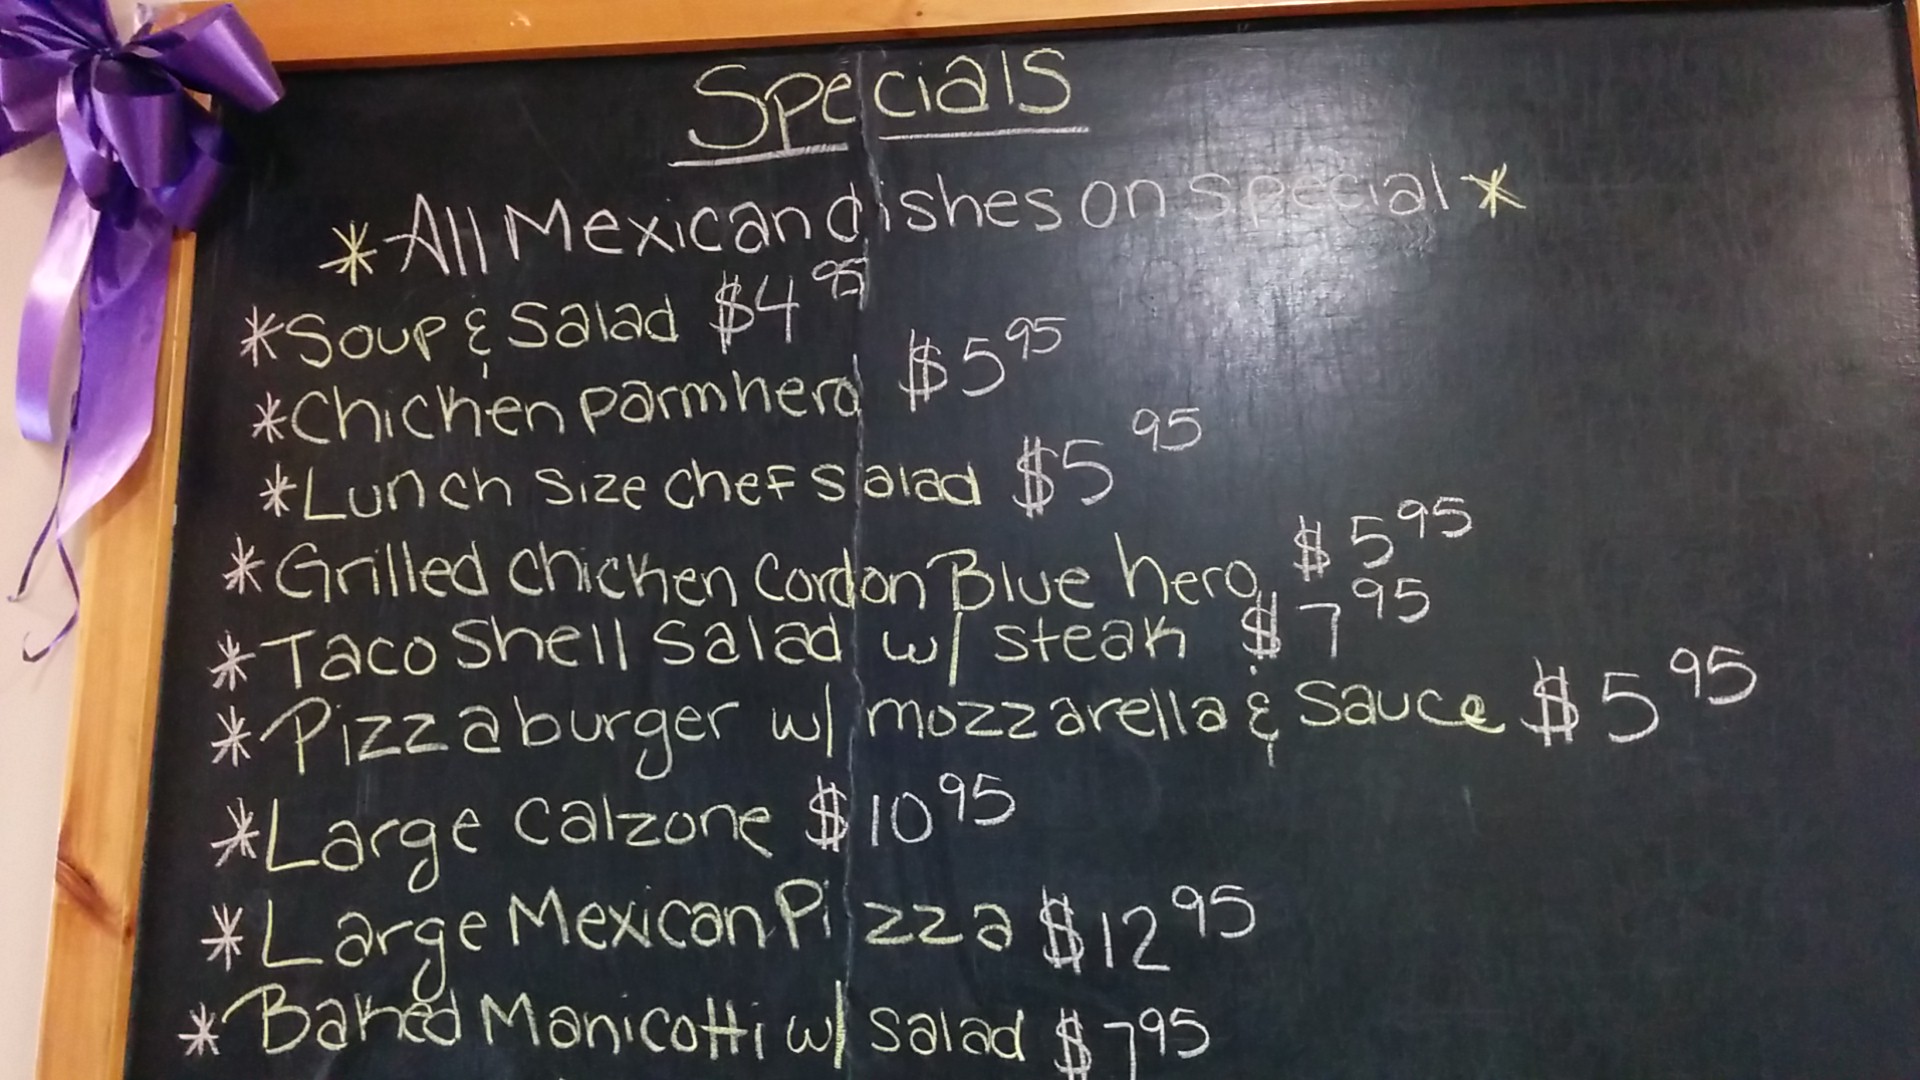 Specials
*All Mexican dishes on special*
*Soup & Salad $4 95
*Chicken parm hero $5 95
*Lunch size chef salad $5 95
*Grilled chicken Cordon Blue hero $5 95
*Taco Shell Salad w/ steak $7 95
*Pizza burger w/ mozzarella & Sauce $5 95
*Large Calzone $10 95
*Large Mexican Pizza $12 95
*Baked Manicotti w/ salad $7 95